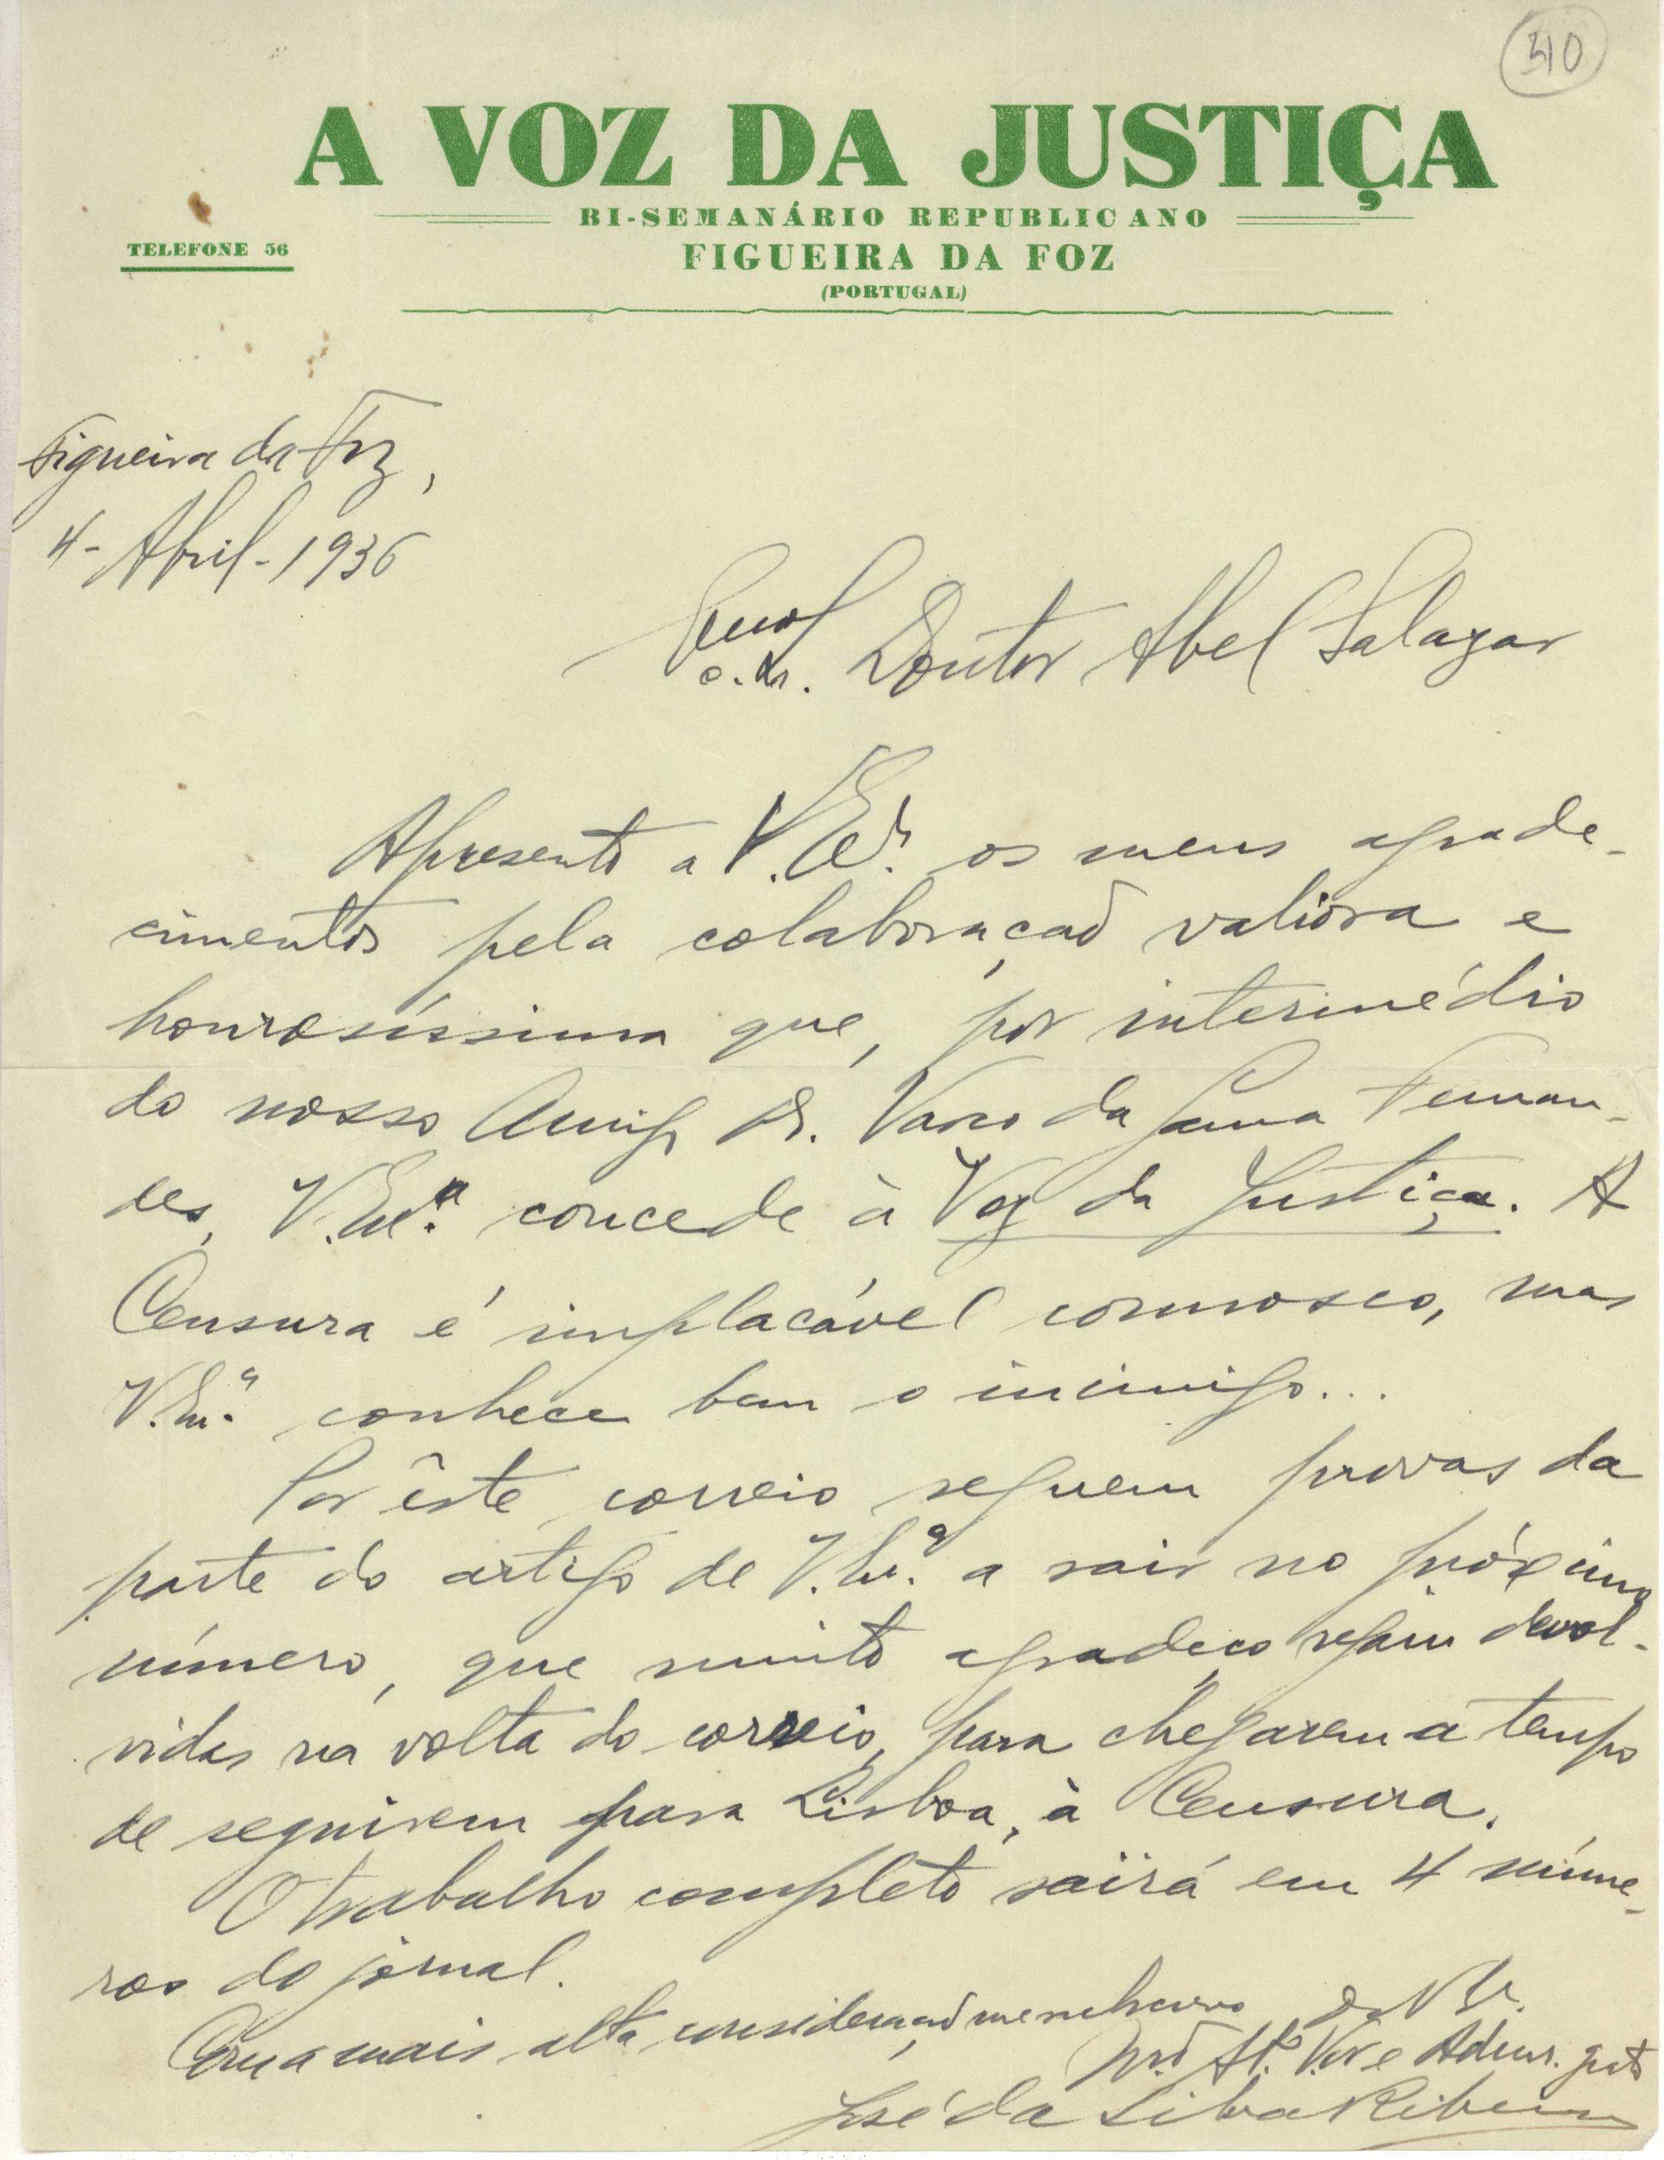 310
A VOZ DA JUSTIÇA
BI-SEMANÁRIO REPUBLICANO
TELEFONE 56
FIGUEIRA DA FOZ
(PORTUGAL)
Figueira da Foz,
4-Abril-1936
Doutor Abel Salazar
Apresento a V. Ex.ª os meus agrade-
cimentos pela colaboração valiosa e
honrosíssima que, por intermédio
do nosso Amigo Dr. Vasco da Gama Fernan-
des, V. Ex.ª concede à Voz da Justiça. A
Censura é implacável connosco, mas
V. Ex.ª conhece bem o inimigo...
Por êste correio seguem provas da
parte do artigo de V. Ex.ª a sair no próximo
número, que muito agradeço sejam devol-
vidas na volta do correio, para chegarem a tempo
de seguirem para Lisboa, à Censura.
O trabalho completo sairá em 4 núme-
ros do jornal.
Com a mais alta consideração me subscrevo de V. Ex.
Mt.º At.º Ven.e Admr. grato
José da Silva Ribeiro